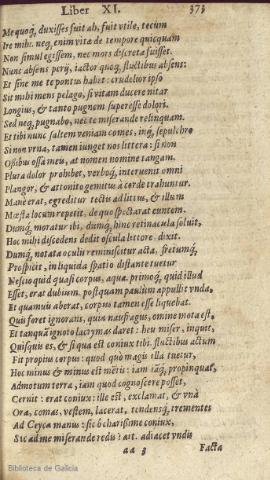 Liber XI. 373
Me quoq, duxisses fuit ah, fuit vtile, tecum
Ire mihi. neq, enim vitæ de tempore quicquam
Non simul egissem, nec mors discreta fuisset.
Nunc absens perij, iactor quoq, fluctibus absens:
Et sine me te pontus habet: crudelior ipso
Sit mihi mens pelago, si vitam ducere nitar
Longius, & tanto pugnem superesse dolori.
Sed neq, pugnabo, nec te miserande relinquam.
Et tibi nunc saltem veniam comes, inq, sepulchro
Si non vrna, tamen iunget nos littera: si non
Ossibus ossa meis, at nomen nomine tangam.
Plura dolor prohibet, verboq, interuenit omni
Plangor, & attonito gemitus à corde trahuntur.
Manè erat, egreditur tectis ad littus, & illum
Mœsta locum repetit, de quo spectarat euntem.
Dumq, moratur ibi, dumq, hinc retinacula soluit,
Hoc mihi discedens dedit oscula littore dixit.
Dumq, notata oculis reminiscitur acta, fretumq,
Prospicit, in liquida spatio distante tuetur
Nescio quid quasi corpus, aqua, primoq, quid illud
Esset, erat dubium. postquam paulùm appulit vnda,
Et quamuis aberat, corpus tamen esse liquebat.
Qui foret ignorans, quia naufragus, omine mota est,
Et tanquã ignoto lacrymas daret: heu miser, inquit,
Quisquis es, & si qua est coniux tibi. fluctibus actum
Fit propius corpus: quod quò magis illa tuetur,
Hoc minus & minus est mētis: iam iāq, propinquæ,
Admotum terræ, iam quod cognoscere posset,
Cernit: erat coniux: ille est, exclamat, & vnà
Ora, comas, vestem, lacerat, tendensq, trementes
Ad Ceyca manus: sic ô charissime coniux,
Sic ad me miserande redis? ait. adiacet vndis
aa 3 Facta
Biblioteca de Galicia